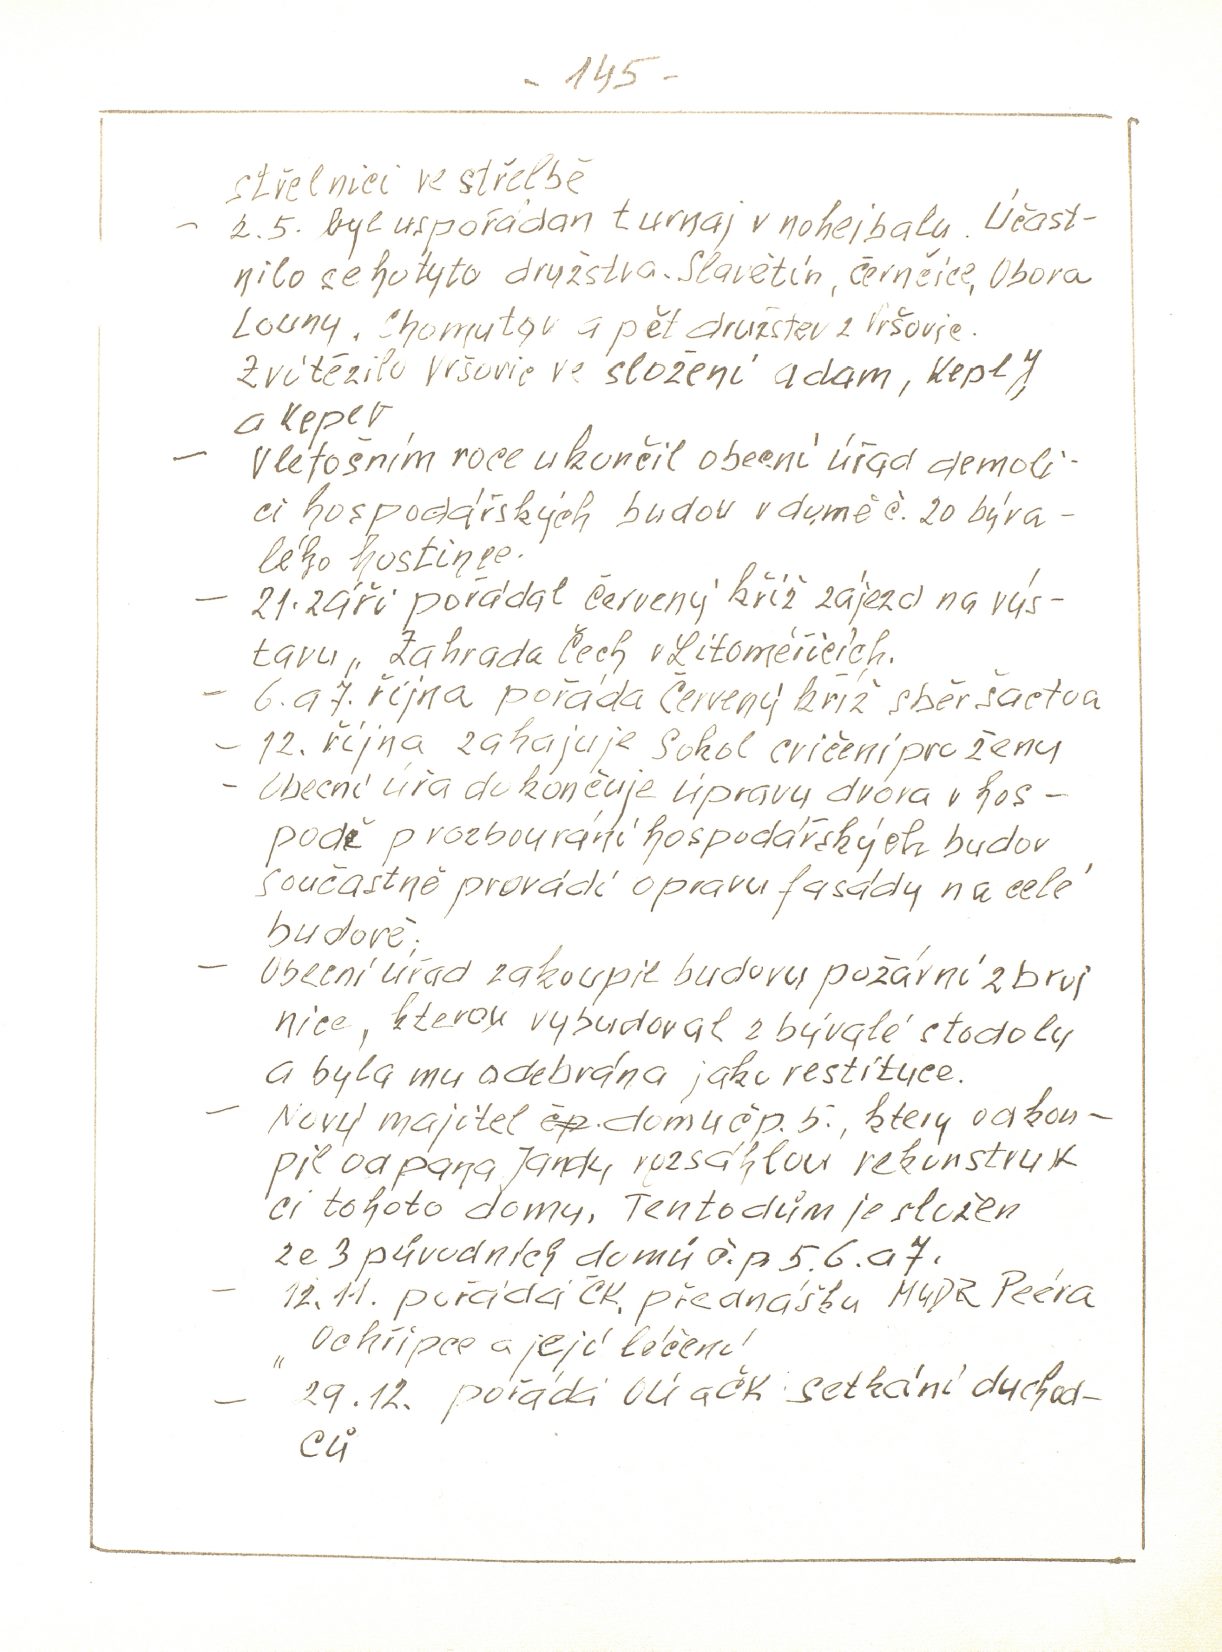 - 145 -
střelnici ve střelbě
- 2.5. byl uspořádán turnaj v nohejbalu. Účast-
nilo se ho tyto družstva. Slavětín, černčice, Obora
Louny, Chomutov a pět družstev z Vršovic.
Zvítězilo Vršovic ve složení Adam, Keplý,
a Kepert
- V letošním roce ukončil obecní úřad demoli-
ci hospodářských budov v domě č. 20 býva-
lého hostince.
- 21. září pořádal červený kříž zájezd na výs-
tavu „ Zahrada Čech v Litoměřicích.
- 6. a 7. října pořáda Červený kříž sběr šactva
- 12. října zahajuje Sokol cvičení pro ženy
- Obecní úřa dokončuje úpravu dvora v hos-
podě p rozbourání hospodářských budov
součastně provádí opravu fasády na celé
budově.
- Obecní úřad zakoupil budovu požární zbroj
nice, kterou vybudoval z bývalé stodoly
a byla mu odebrána jako restituce.
- Nový majitel čp. domu čp. 5., který odkou-
pil od pana Jandy rozsáhlou rekonstruk
ci tohoto domu. Tento dům je složen
ze 3 původních domů č.p 5.6. a 7.
- 12. 11. pořádá ČK, přednášku MUDR Peéra
„ O chřipce a její léčení
- 29.12. pořádá OÚ a ČK setkání duchod-
ců